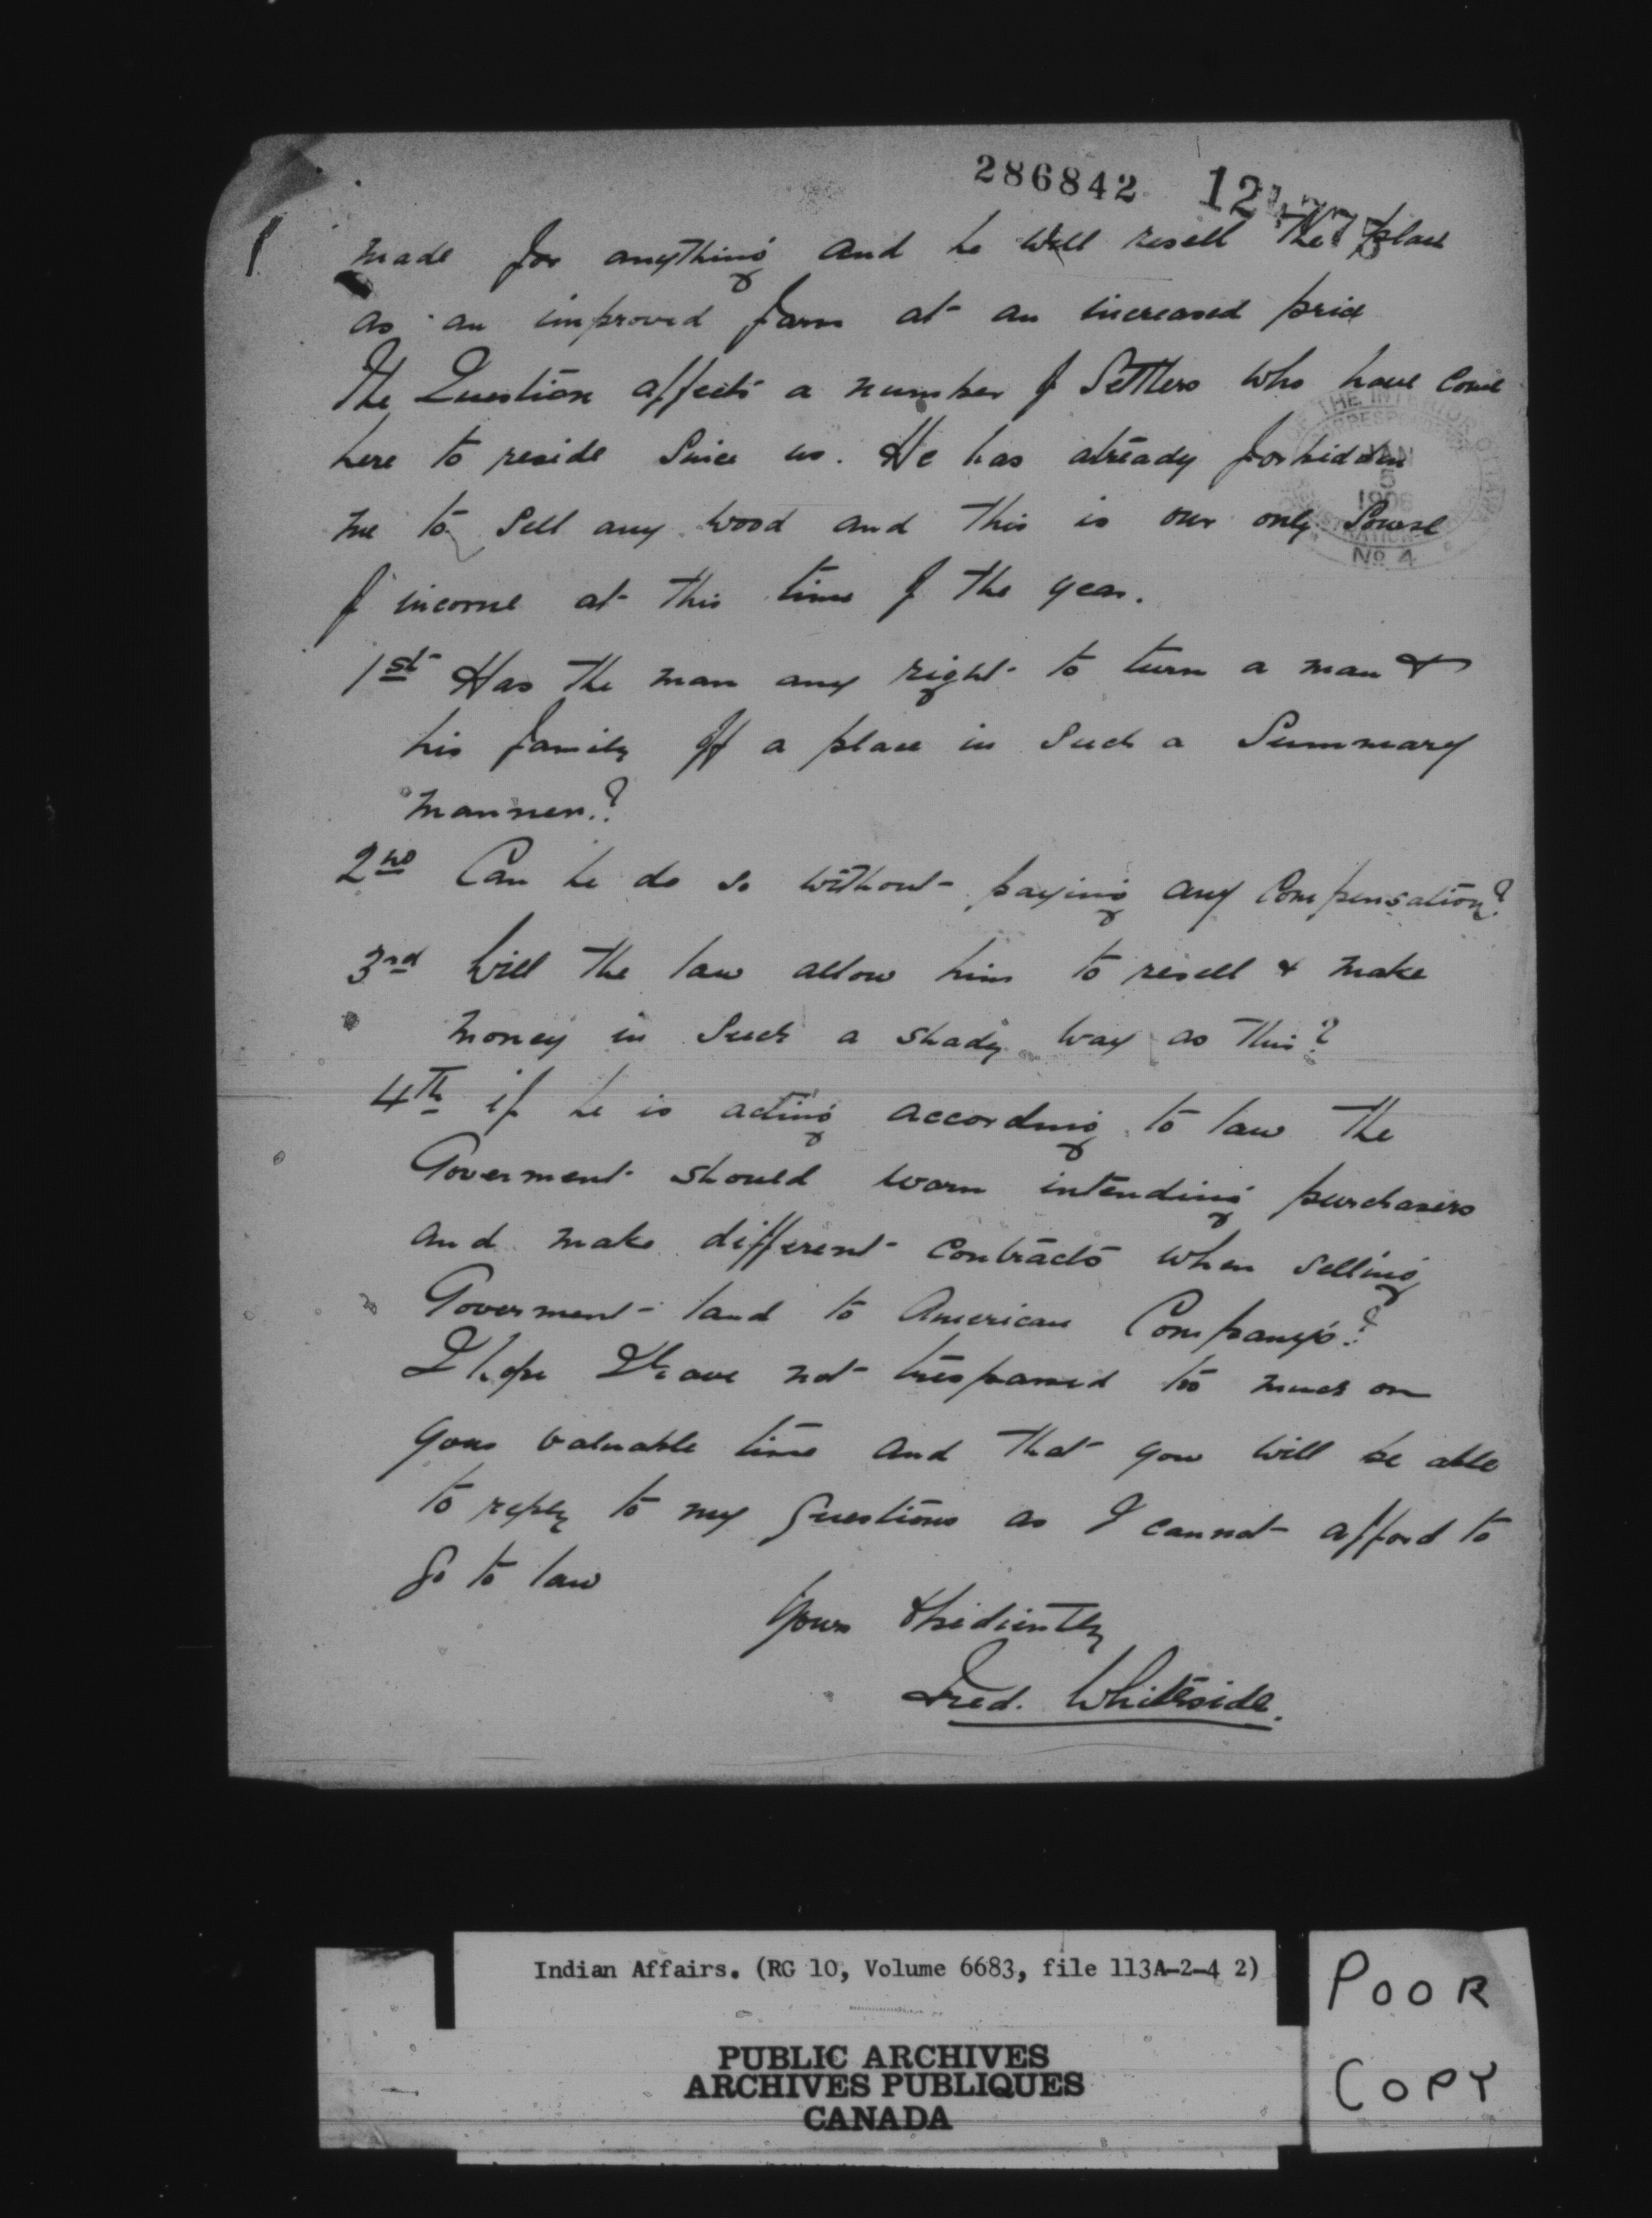 286842
made for anything and he will resell the place
as an improved farm at an increased price
The Question affects a number of Settlers who have come
here to reside Since us. He has already forbidden
me to Sell any wood and this is our only Sourse
of income at this time of the year.
1st Has the man any right to turn a man &
his family off a place in Such a Summary
manner.?
2nd Can he do so without paying any Compensation?
3rd Will the law allow him to resell & make
money in Such a shady way as this?
4th if he is acting according to law the
Goverment should warn intending purchasers
and make different contracts when Selling
Goverment land to American Company's?
I hope I have not trespassed too much on
your valuable time and that you will be able
to reply to my Questions as I cannot afford to
go to law
Yours Obidiently
Fred. Whiteside.
THE INTERIOR OTTAWA
JAN
5
1906
No 4
Indian Affairs. (RG 10, Volume 6683, file 113A-2-4 2)
PUBLIC ARCHIVES
ARCHIVES PUBLIQUES
CANADA
POOR
COPY